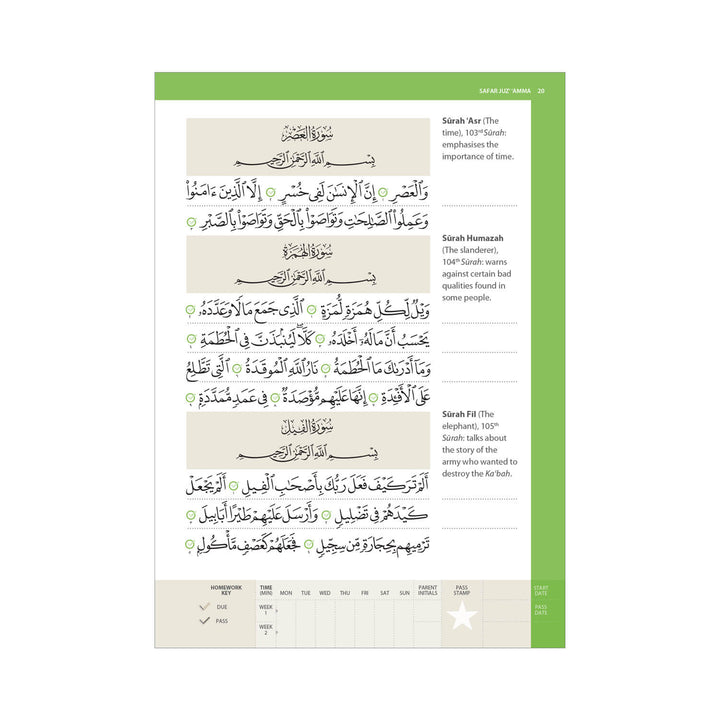 SAFAR JUZ' 'AMMA 20
سُورَةُ العَصْرِ
بِسْمِ ٱللَّهِ ٱلرَّحْمَٰنِ ٱلرَّحِيمِ
وَٱلْعَصْرِ ١ إِنَّ ٱلْإِنسَٰنَ لَفِى خُسْرٍ ٢ إِلَّا ٱلَّذِينَ ءَامَنُوا۟
وَعَمِلُوا۟ ٱلصَّٰلِحَٰتِ وَتَوَاصَوْا۟ بِٱلْحَقِّ وَتَوَاصَوْا۟ بِٱلصَّبْرِ ٣
Sūrah 'Asr (The
time), 103rd Sūrah:
emphasises the
importance of time.
سُورَةُ الهُمَزَةِ
بِسْمِ ٱللَّهِ ٱلرَّحْمَٰنِ ٱلرَّحِيمِ
وَيْلٌ لِّكُلِّ هُمَزَةٍ لُّمَزَةٍ ١ ٱلَّذِى جَمَعَ مَالًا وَعَدَّدَهُۥ ٢
يَحْسَبُ أَنَّ مَالَهُۥٓ أَخْلَدَهُۥ ٣ كَلَّا ۖ لَيُنۢبَذَنَّ فِى ٱلْحُطَمَةِ ٤
وَمَآ أَدْرَىٰكَ مَا ٱلْحُطَمَةُ ٥ نَارُ ٱللَّهِ ٱلْمُوقَدَةُ ٦ ٱلَّتِى تَطَّلِعُ
عَلَى ٱلْأَفْـِٔدَةِ ٧ إِنَّهَا عَلَيْهِم مُّؤْصَدَةٌ ٨ فِى عَمَدٍ مُّمَدَّدَةٍۭ ٩
Sūrah Humazah
(The slanderer),
104th Sūrah: warns
against certain bad
qualities found in
some people.
سُورَةُ الفِيلِ
بِسْمِ ٱللَّهِ ٱلرَّحْمَٰنِ ٱلرَّحِيمِ
أَلَمْ تَرَ كَيْفَ فَعَلَ رَبُّكَ بِأَصْحَٰبِ ٱلْفِيلِ ١ أَلَمْ يَجْعَلْ
كَيْدَهُمْ فِى تَضْلِيلٍ ٢ وَأَرْسَلَ عَلَيْهِمْ طَيْرًا أَبَابِيلَ ٣
تَرْمِيهِم بِحِجَارَةٍ مِّن سِجِّيلٍ ٤ فَجَعَلَهُمْ كَعَصْفٍ مَّأْكُولٍۭ ٥
Sūrah Fīl (The
elephant), 105th
Sūrah: talks about
the story of the
army who wanted to
destroy the Ka'bah.
HOMEWORK KEY
DUE
PASS
TIME (MIN) MON TUE WED THU FRI SAT SUN PARENT INITIALS PASS STAMP START DATE
WEEK 1
WEEK 2
PASS DATE